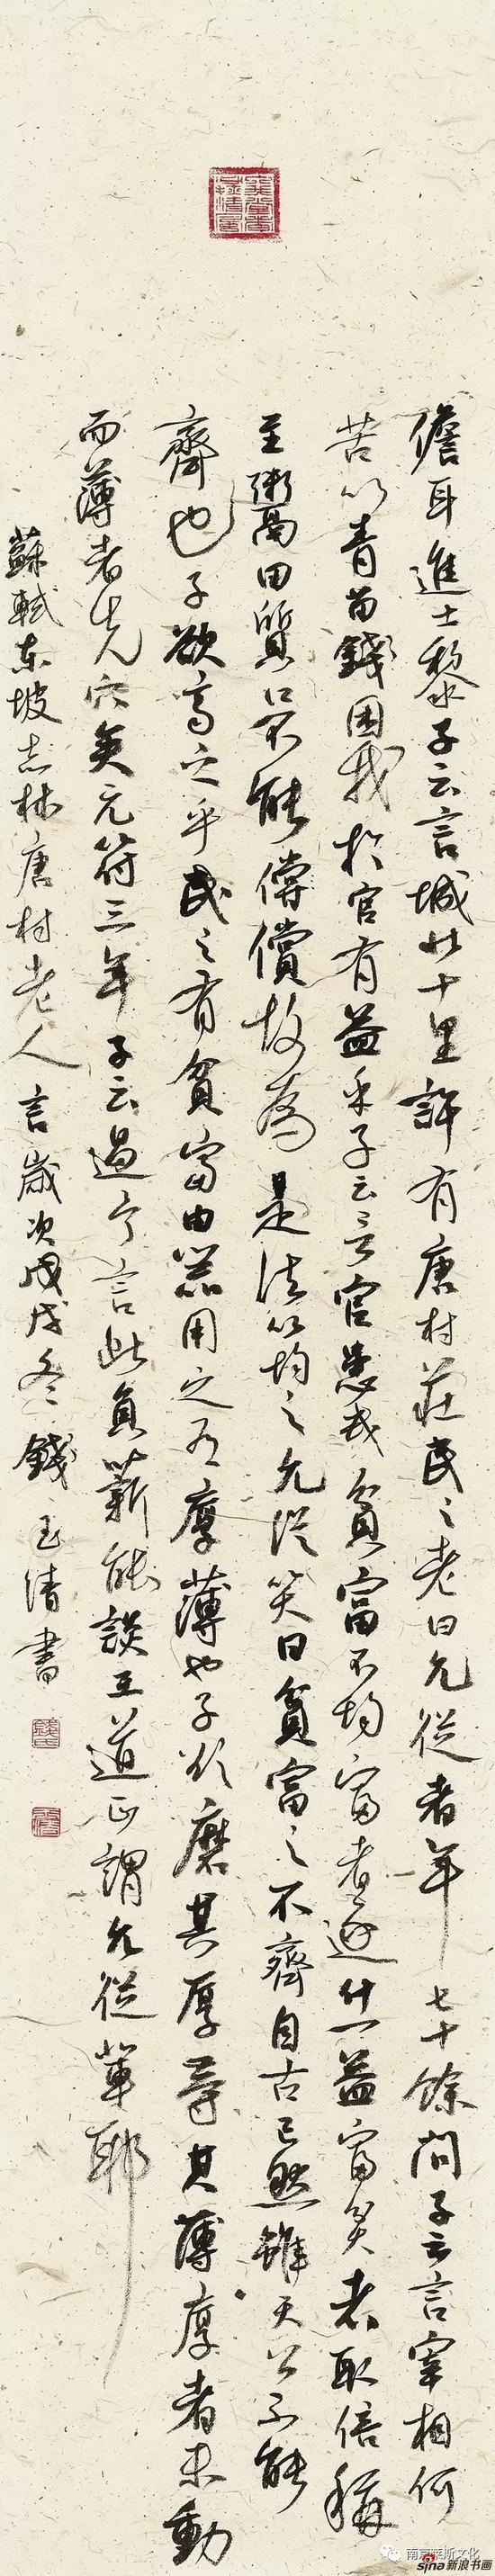 儋耳進士黎子云言城北十里許有唐村莊民之老曰允從者年七十餘問子云言宰相何
苦以青苗錢困我於官有益乎子云言官患民貧富不均富者逐什一益富貧者取倍稱
至鬻田質口不能償故為是法以均之允從笑曰貧富之不齊自古已然雖天公不能
齊也子欲齊之乎民之有貧富由器用之有厚薄也子欲磨其厚等其薄厚者未動
而薄者先穴矣元符三年子云過予言此負薪能談王道正謂允從輩耶
蘇軾東坡志林唐村老人言歲次戊戌冬錢玉清書
南京莱斯文化
sina新浪书画